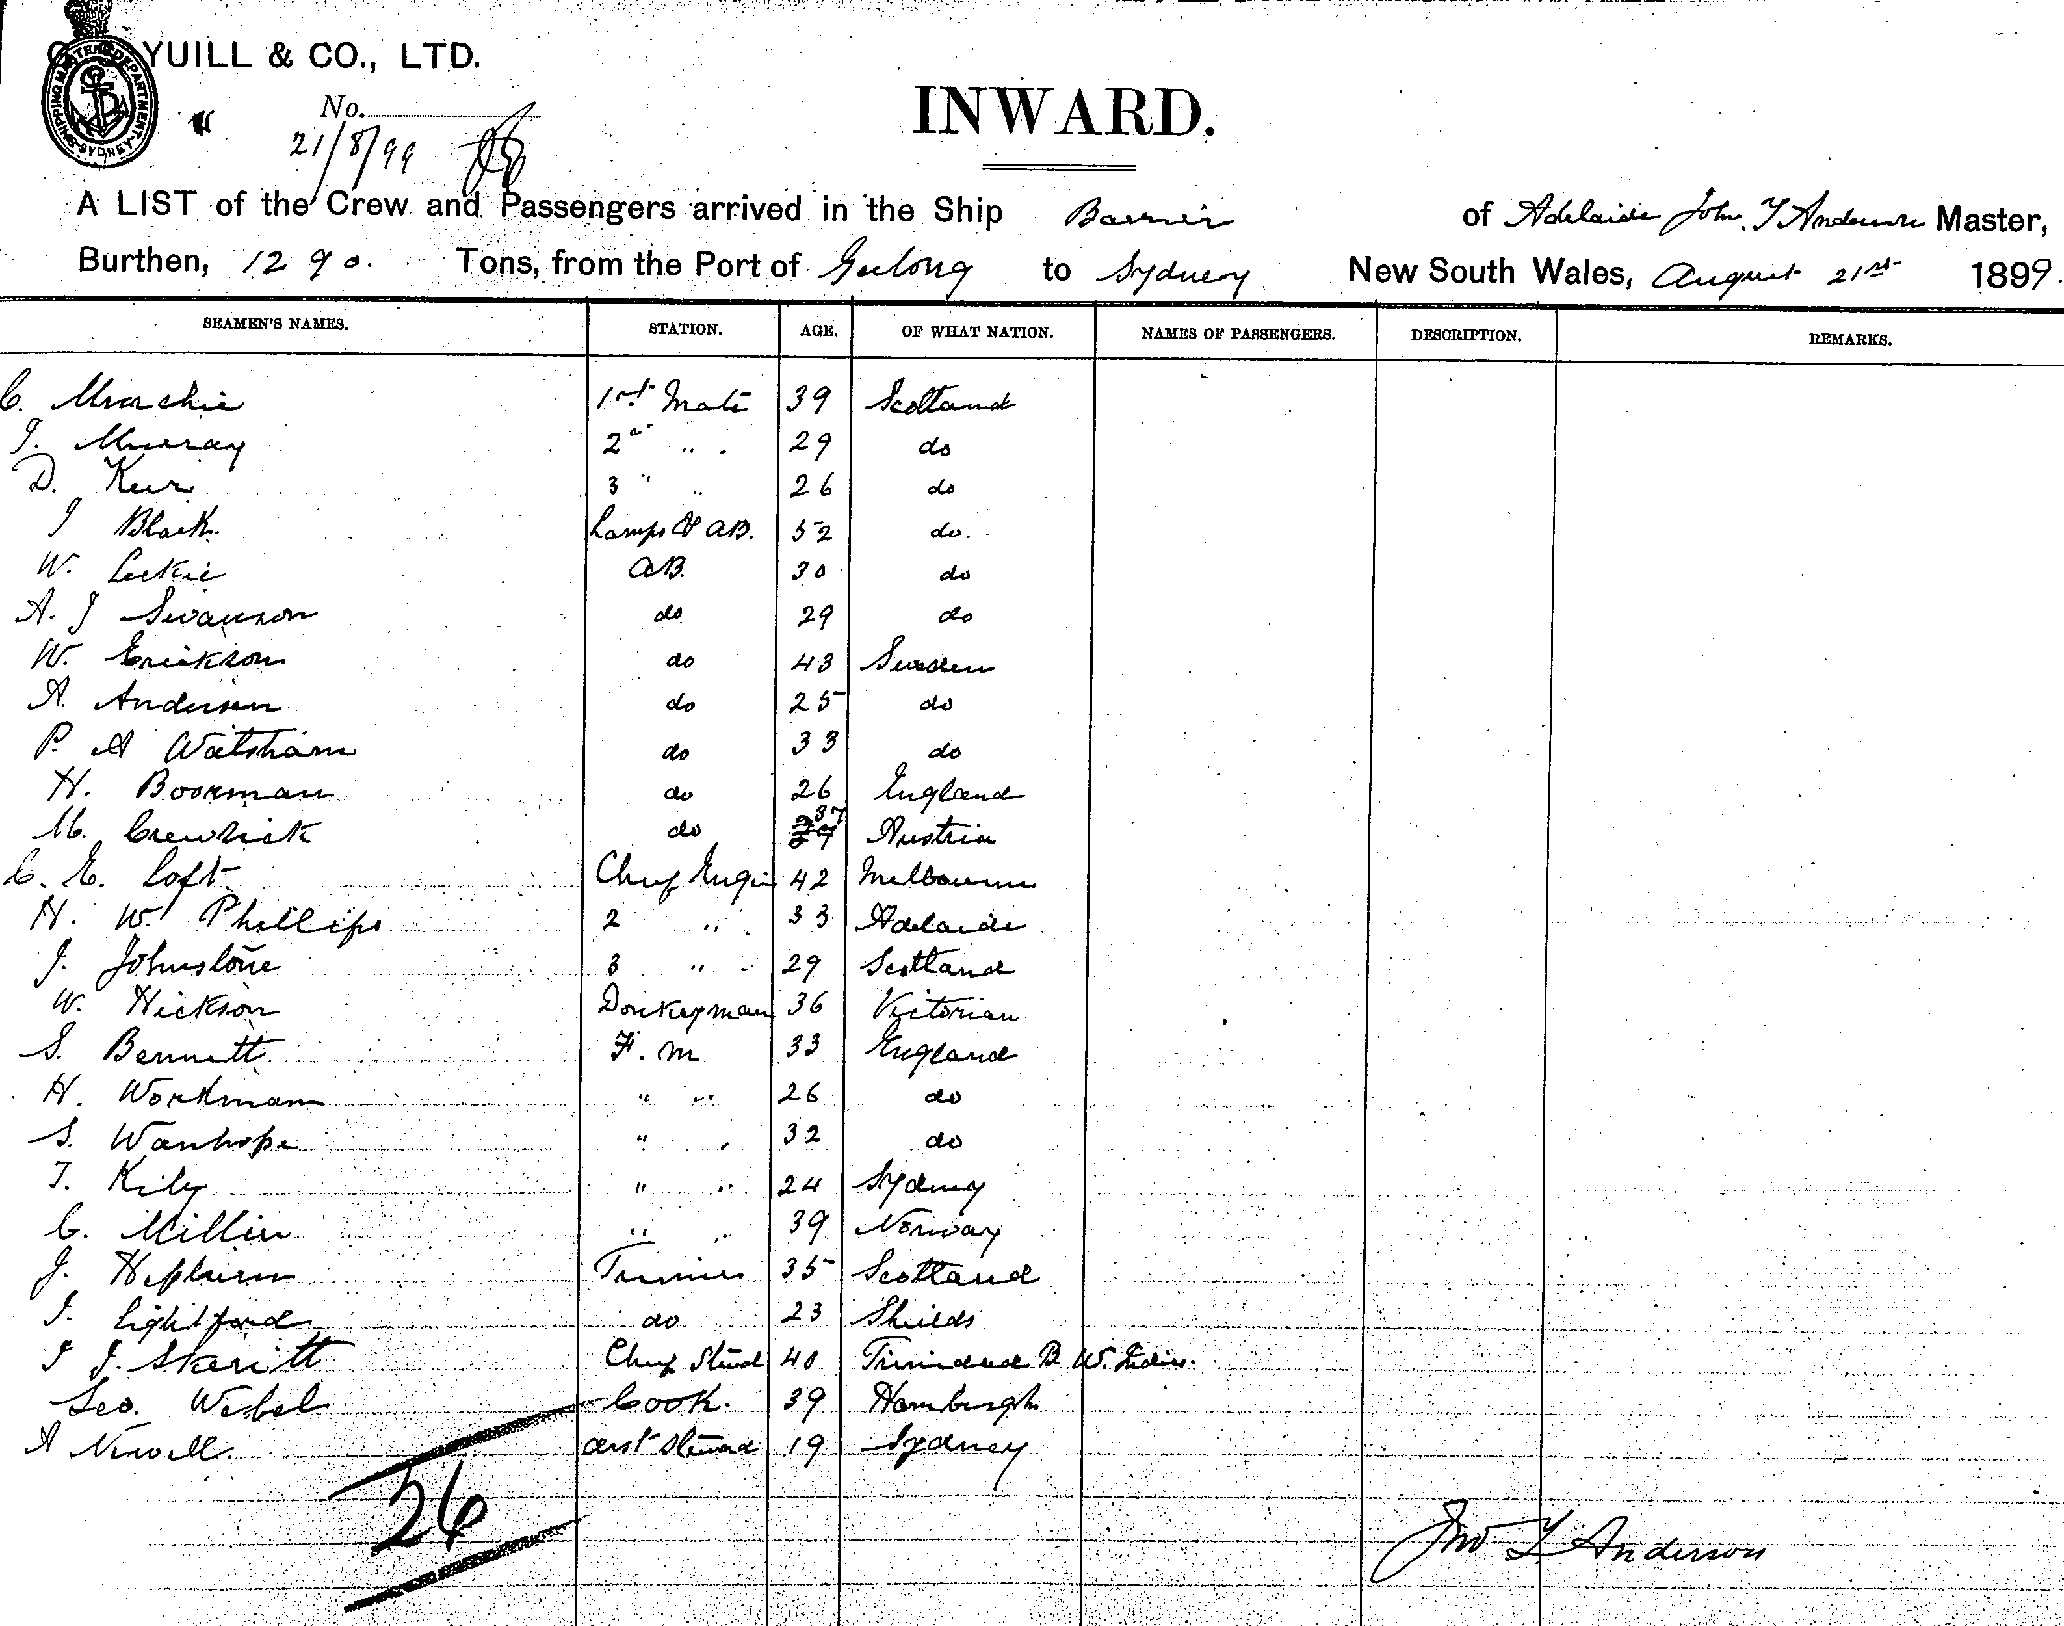 YUILL & CO., LTD.
SHIPPING MASTERS DEPARTMENT SYDNEY
No.
21/8/99
INWARD.
A LIST of the Crew and Passengers arrived in the Ship Barrier of Adelaide John. T Anderson Master,
Burthen, 1290. Tons, from the Port of Geelong to Sydney New South Wales, August 21st 1899.
SEAMEN'S NAMES. STATION. AGE. OF WHAT NATION. NAMES OF PASSENGERS. DESCRIPTION. REMARKS.
C. Mcrachie 1st Mate 39 Scotland
J. Murray 2nd " " 29 do
D. Keir 3 " " 26 do
J Black. Lamps & AB. 52 do.
W. Leckie AB. 30 do
A. J Swanson do 29 do
W. Erickson do 43 Sweden
A. Anderson do 25 do
P. A Watsham do 33 do
H. Boorman do 26 England
M. do 37 Austria
C. E. Loft Chief Engin 42 Melbourne
H. W. Phillips 2 " 33 Adelaide
J. Johnstone 3 " 29 Scotland
W. Hickson Donkeyman 36 Victorian
S. Bennett F. M 33 England
H. Workman " " 26 do
S. Wanhope " " 32 do
T. Kily " " 24 Sydney
C. Millin " " 39 Norway
J. Hepburn Trimmer 35 Scotland
J. Lightford do 23 Shields
J J. Skaritt Chief Stewd 40 Trinidad B W. Indies.
Geo. Webel Cook. 39 Hamburgh
A Newell asst Steward 19 Sydney
26
Jno T Anderson